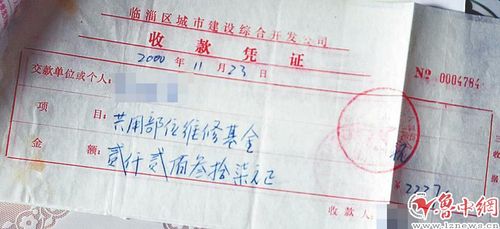 临淄区城市建设综合开发公司
收款凭证
2000年11月23日
№ 0004784
交款单位或个人：
项目：共用部位维修基金
金额：贰仟贰佰叁拾柒元正
¥2237
收款人：
鲁中網
www.lznews.cn